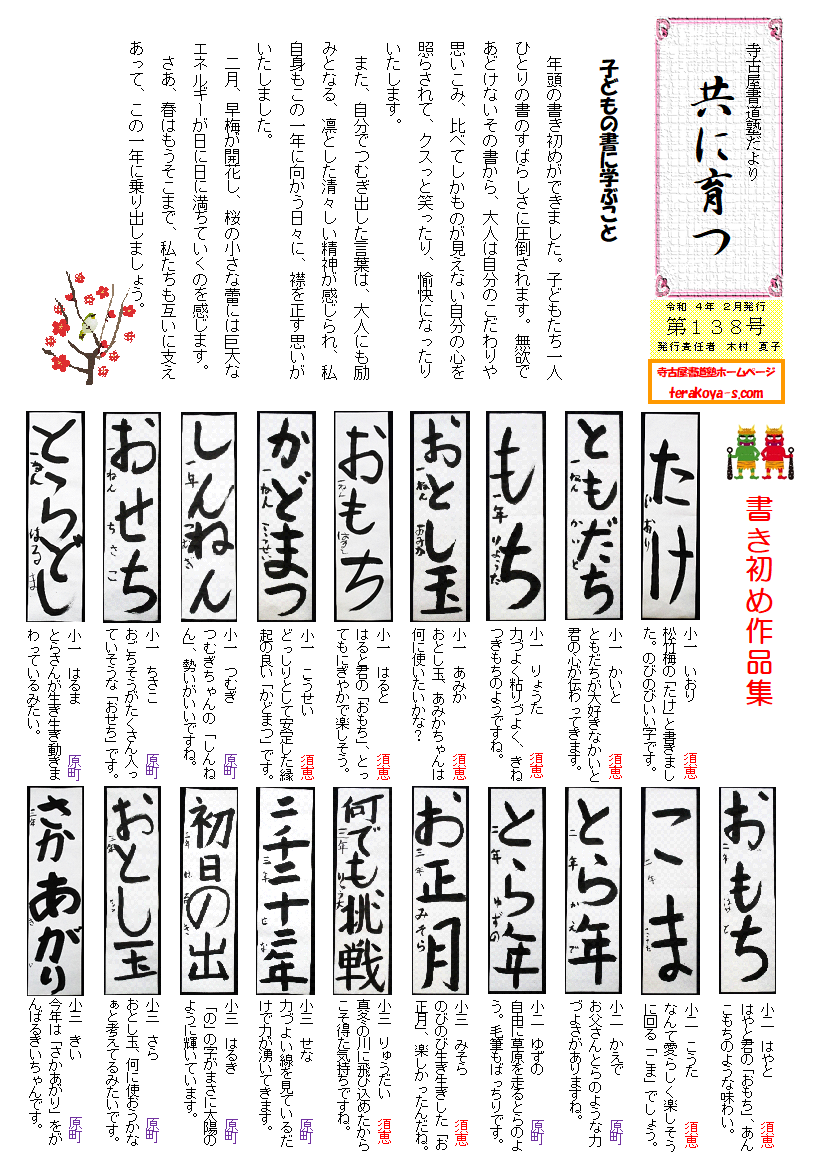 寺古屋書道塾だより
共に育つ
令和 4年 2月発行
第138号
発行責任者 木村 夏子
寺古屋書道塾ホームページ
terakoya-s.com
子どもの書に学ぶこと
年頭の書き初めができました。子どもたち一人
ひとりの書のすばらしさに圧倒されます。無欲で
あどけないその書から、大人は自分のこだわりや
思いこみ、比べてしかものが見えない自分の心を
照らされて、クスっと笑ったり、愉快になったり
いたします。
また、自分でつむぎ出した言葉は、大人にも励
みとなる、凛とした清々しい精神が感じられ、私
自身もこの一年に向かう日々に、襟を正す思いが
いたしました。
二月、早梅が開花し、桜の小さな蕾には巨大な
エネルギーが日に日に満ちていくのを感じます。
さあ、春はもうそこまで、私たちも互いに支え
あって、この一年に乗り出しましょう。
書き初め作品集
たけ
いおり
小一 いおり 須恵
松竹梅の「たけ」と書きまし
た。のびのびいい字です。
ともだち
一ねん かいと
小一 かいと 須恵
ともだちが大好きなかいと
君の心が伝わってきます。
もち
一年 りょうた
小一 りょうた 須恵
力づよく粘りづよく、きね
つきもちのようですね。
おとし玉
一ねん あみか
小一 あみか 須恵
おとし玉、あみかちゃんは
何に使いたいかな？
おもち
小一 はると 須恵
はると君の「おもち」、とっ
てもにぎやかで楽しそう。
かどまつ
一ねん こうせい
小一 こうせい 須恵
どっしりとして安定した縁
起の良い「かどまつ」です。
しんねん
一年 つむぎ
小一 つむぎ 原町
つむぎちゃんの「しんね
ん」、勢いがいいですね。
おせち
一ねん ちさこ
小一 ちさこ 原町
おごちそうがたくさん入っ
ていそうな「おせち」です。
とらどし
一ねん はるま
小一 はるま 原町
とらさんが生き生き動きま
わっているみたい。
おもち
二年 はやと
小二 はやと 須恵
はやと君の「おもち」、あん
こもちのような味わい。
こま
二年 こうた
小二 こうた 須恵
なんて愛らしく楽しそう
に回る「こま」でしょう。
とら年
二年 かえで
小二 かえで 原町
お父さんとらのような力
づよさがありますね。
とら年
二年 ゆずの
小二 ゆずの 原町
自由に草原を走るとらのよ
う。毛筆もばっちりです。
お正月
三年 みそら
小三 みそら 須恵
のびのび生き生きした「お
正月」、楽しかったんだね。
何でも挑戦
三年 りゅうだい
小三 りゅうだい 須恵
真冬の川に飛び込めたから
こそ得た気持ちですね。
二千二十二年
三年 せな
小三 せな 原町
力づよい線を見ているだ
けで力が湧いてきます。
初日の出
三年 はるき
小三 はるき 原町
「の」の字がまさに太陽の
ように輝いています。
おとし玉
三年 さら
小三 さら 原町
おとし玉、何に使おうかな
ぁと考えてるみたいです。
さかあがり
三年 きい
小三 きい 原町
今年は「さかあがり」をが
んばるきいちゃんです。